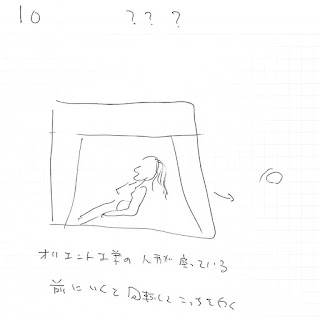 10 ? ? ?
10
オリエント工業の人形が座っている
前にいくと回転してこっちを向く